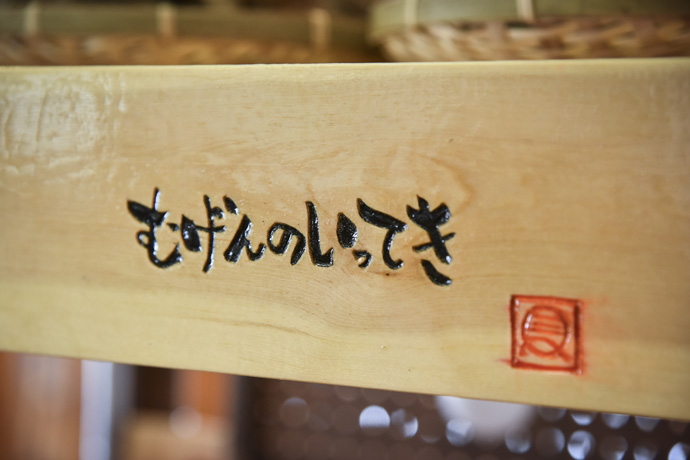 むげんのいってき